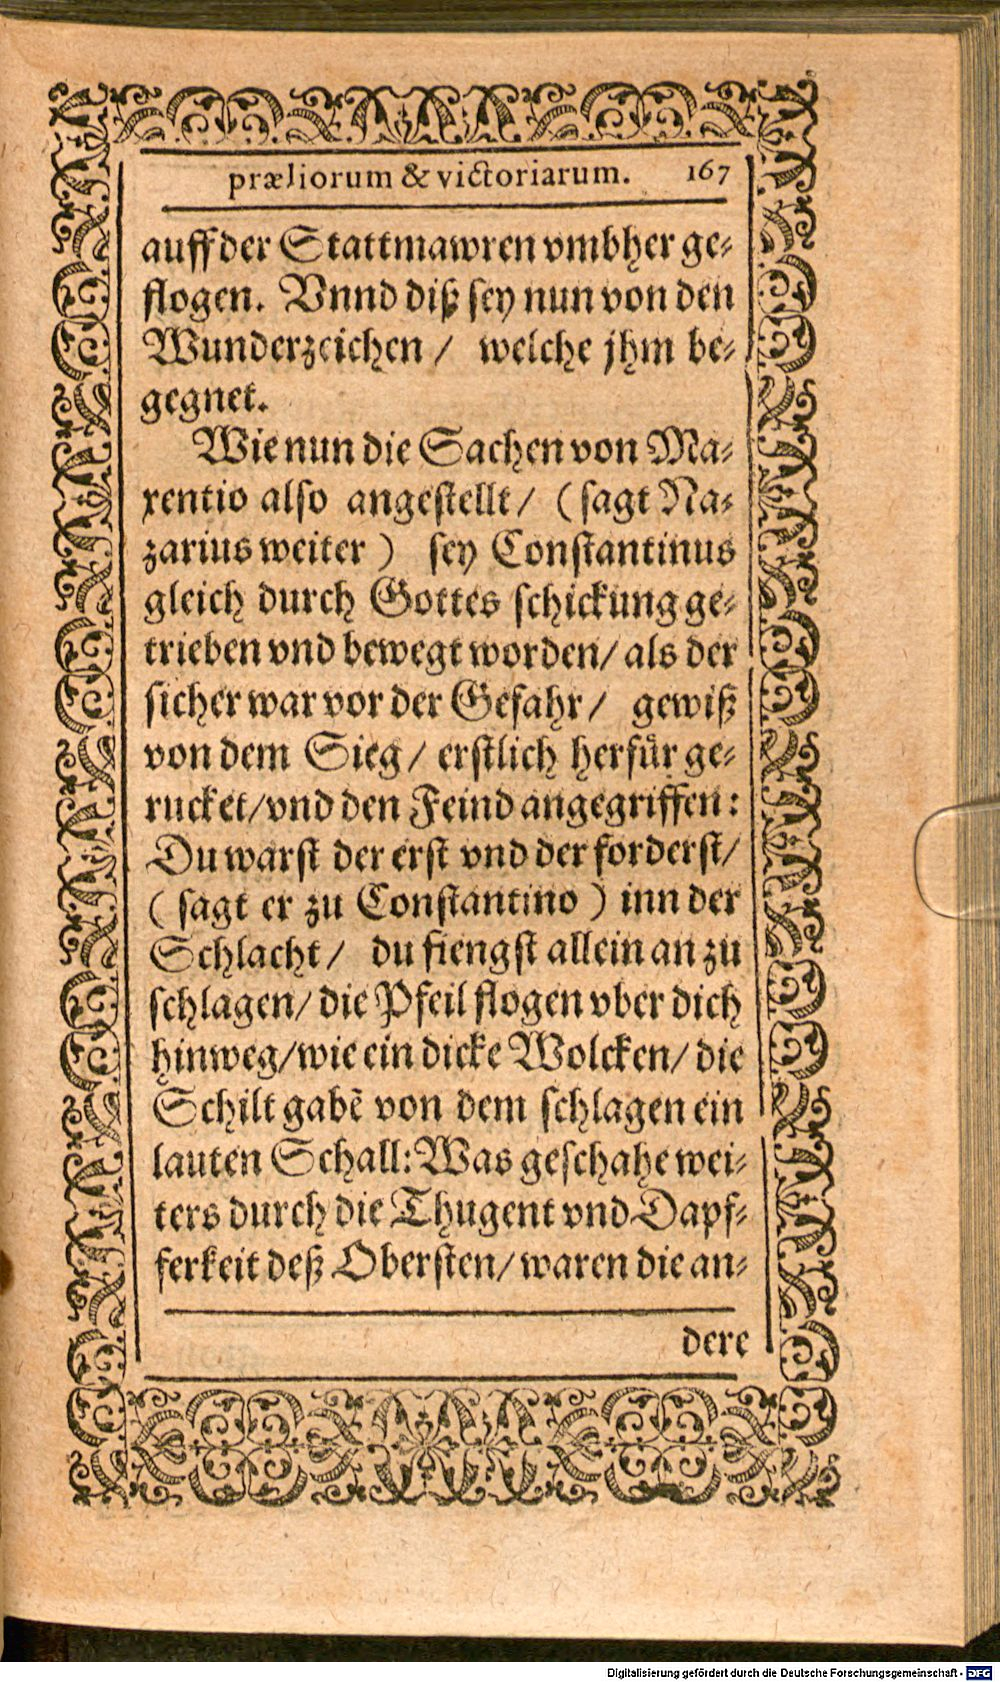 præliorum & victoriarum. 167
auff der Stattmawren vmbher ge-
flogen. Vnnd diß sey nun von den
Wunderzeichen / welche jhm be-
gegnet.
Wie nun die Sachen von Ma-
xentio also angestellt / ( sagt Na-
zarius weiter ) sey Constantinus
gleich durch Gottes schickung ge-
trieben vnd bewegt worden / als der
sicher war vor der Gefahr / gewiß
von dem Sieg / erstlich herfür ge-
rucket / vnd den Feind angegriffen :
Du warst der erst vnd der forderst /
( sagt er zu Constantino ) inn der
Schlacht / du fiengst allein an zu
schlagen / die Pfeil flogen vber dich
hinweg / wie ein dicke Wolcken / die
Schilt gabẽ von dem schlagen ein
lauten Schall: Was geschahe wei-
ters durch die Thugent vnd Dapf-
ferkeit deß Obersten / waren die an-
dere
Digitalisierung gefördert durch die Deutsche Forschungsgemeinschaft - DFG